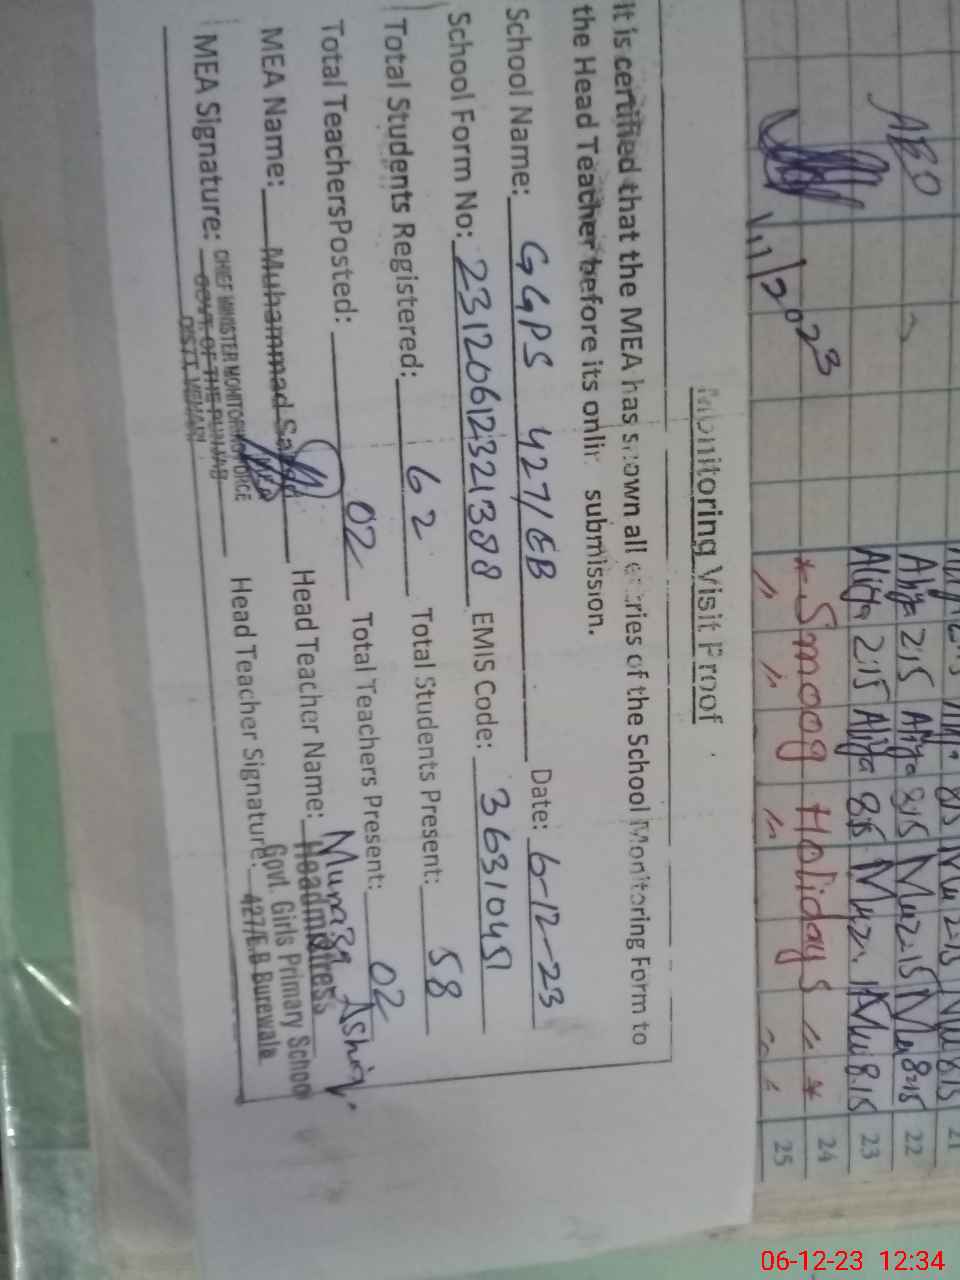 Monitoring Visit Proof
It is certified that the MEA has shown all entries of the School Monitoring Form to
the Head Teacher before its online submission.
School Name: GGPS 427/EB Date: 6-12-23
School Form No: 23120612321388 EMIS Code: 36310451
Total Students Registered: 62 Total Students Present: 58
Total TeachersPosted: 02 Total Teachers Present: 02
MEA Name: Muhammad Head Teacher Name: Munaza Ashiq.
Headmistress
MEA Signature: CHIEF MINISTER MONITORING FORCE Head Teacher Signature: Govt. Girls Primary School
GOVT. OF THE PUNJAB 427/E.B Burewala
DISTT. VEHARI
21
Aliya 2:15 Aliya 8:15 Muz 2:15 Mu 8:15 22
Aliya 2:15 Aliya 8:15 Muz Mu 8:15 23
* Smoog Holidays " * 24
" " " " " 25
06-12-23 12:34